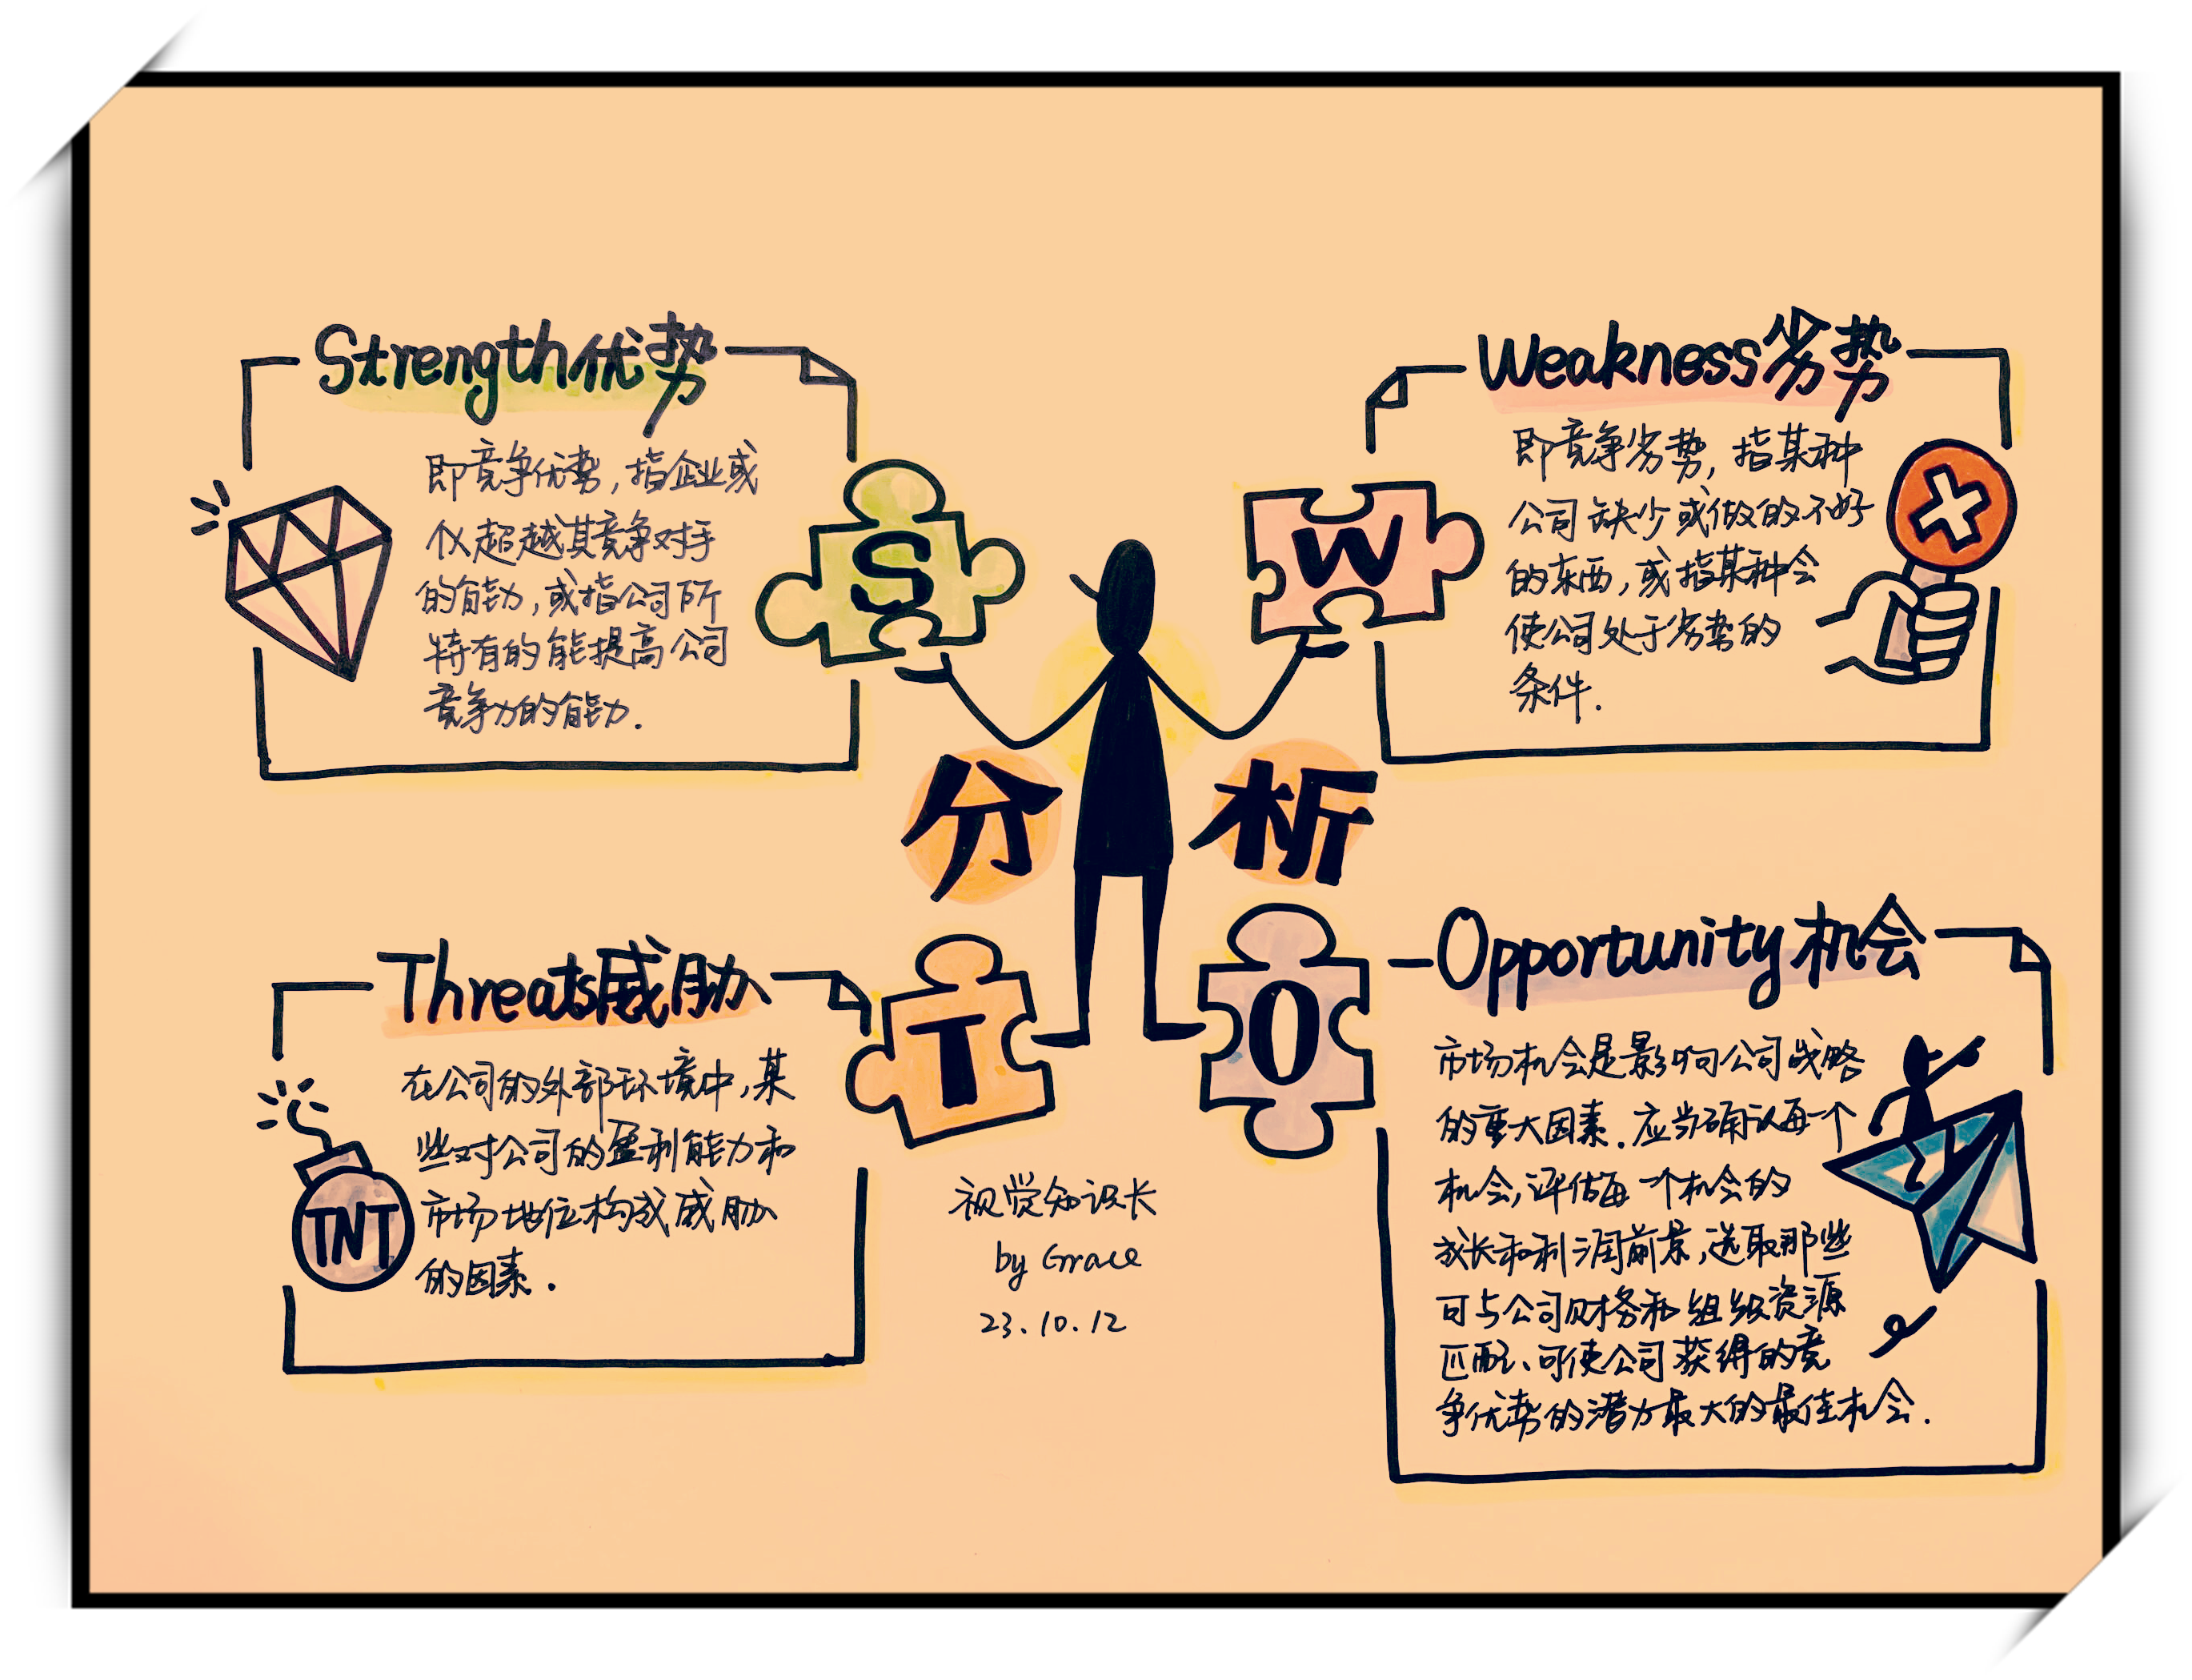 Strength优势
即竞争优势，指企业或
仅超越其竞争对手
的能力，或指公司所
特有的能提高公司
竞争力的能力.
S
Weakness劣势
即竞争劣势，指某种
公司缺少或做的不好
的东西，或指某种会
使公司处于劣势的
条件.
W
分析
Threats威胁
在公司的外部环境中，某
些对公司的盈利能力和
市场地位构成威胁
的因素.
TNT
T
O
Opportunity机会
市场机会是影响公司战略
的重大因素.应当确认每一个
机会，评估每一个机会的
成长和利润前景，选取那些
可与公司财务和组织资源
匹配、可使公司获得的竞
争优势的潜力最大的最佳机会.
视觉知识长
by Grace
23.10.12